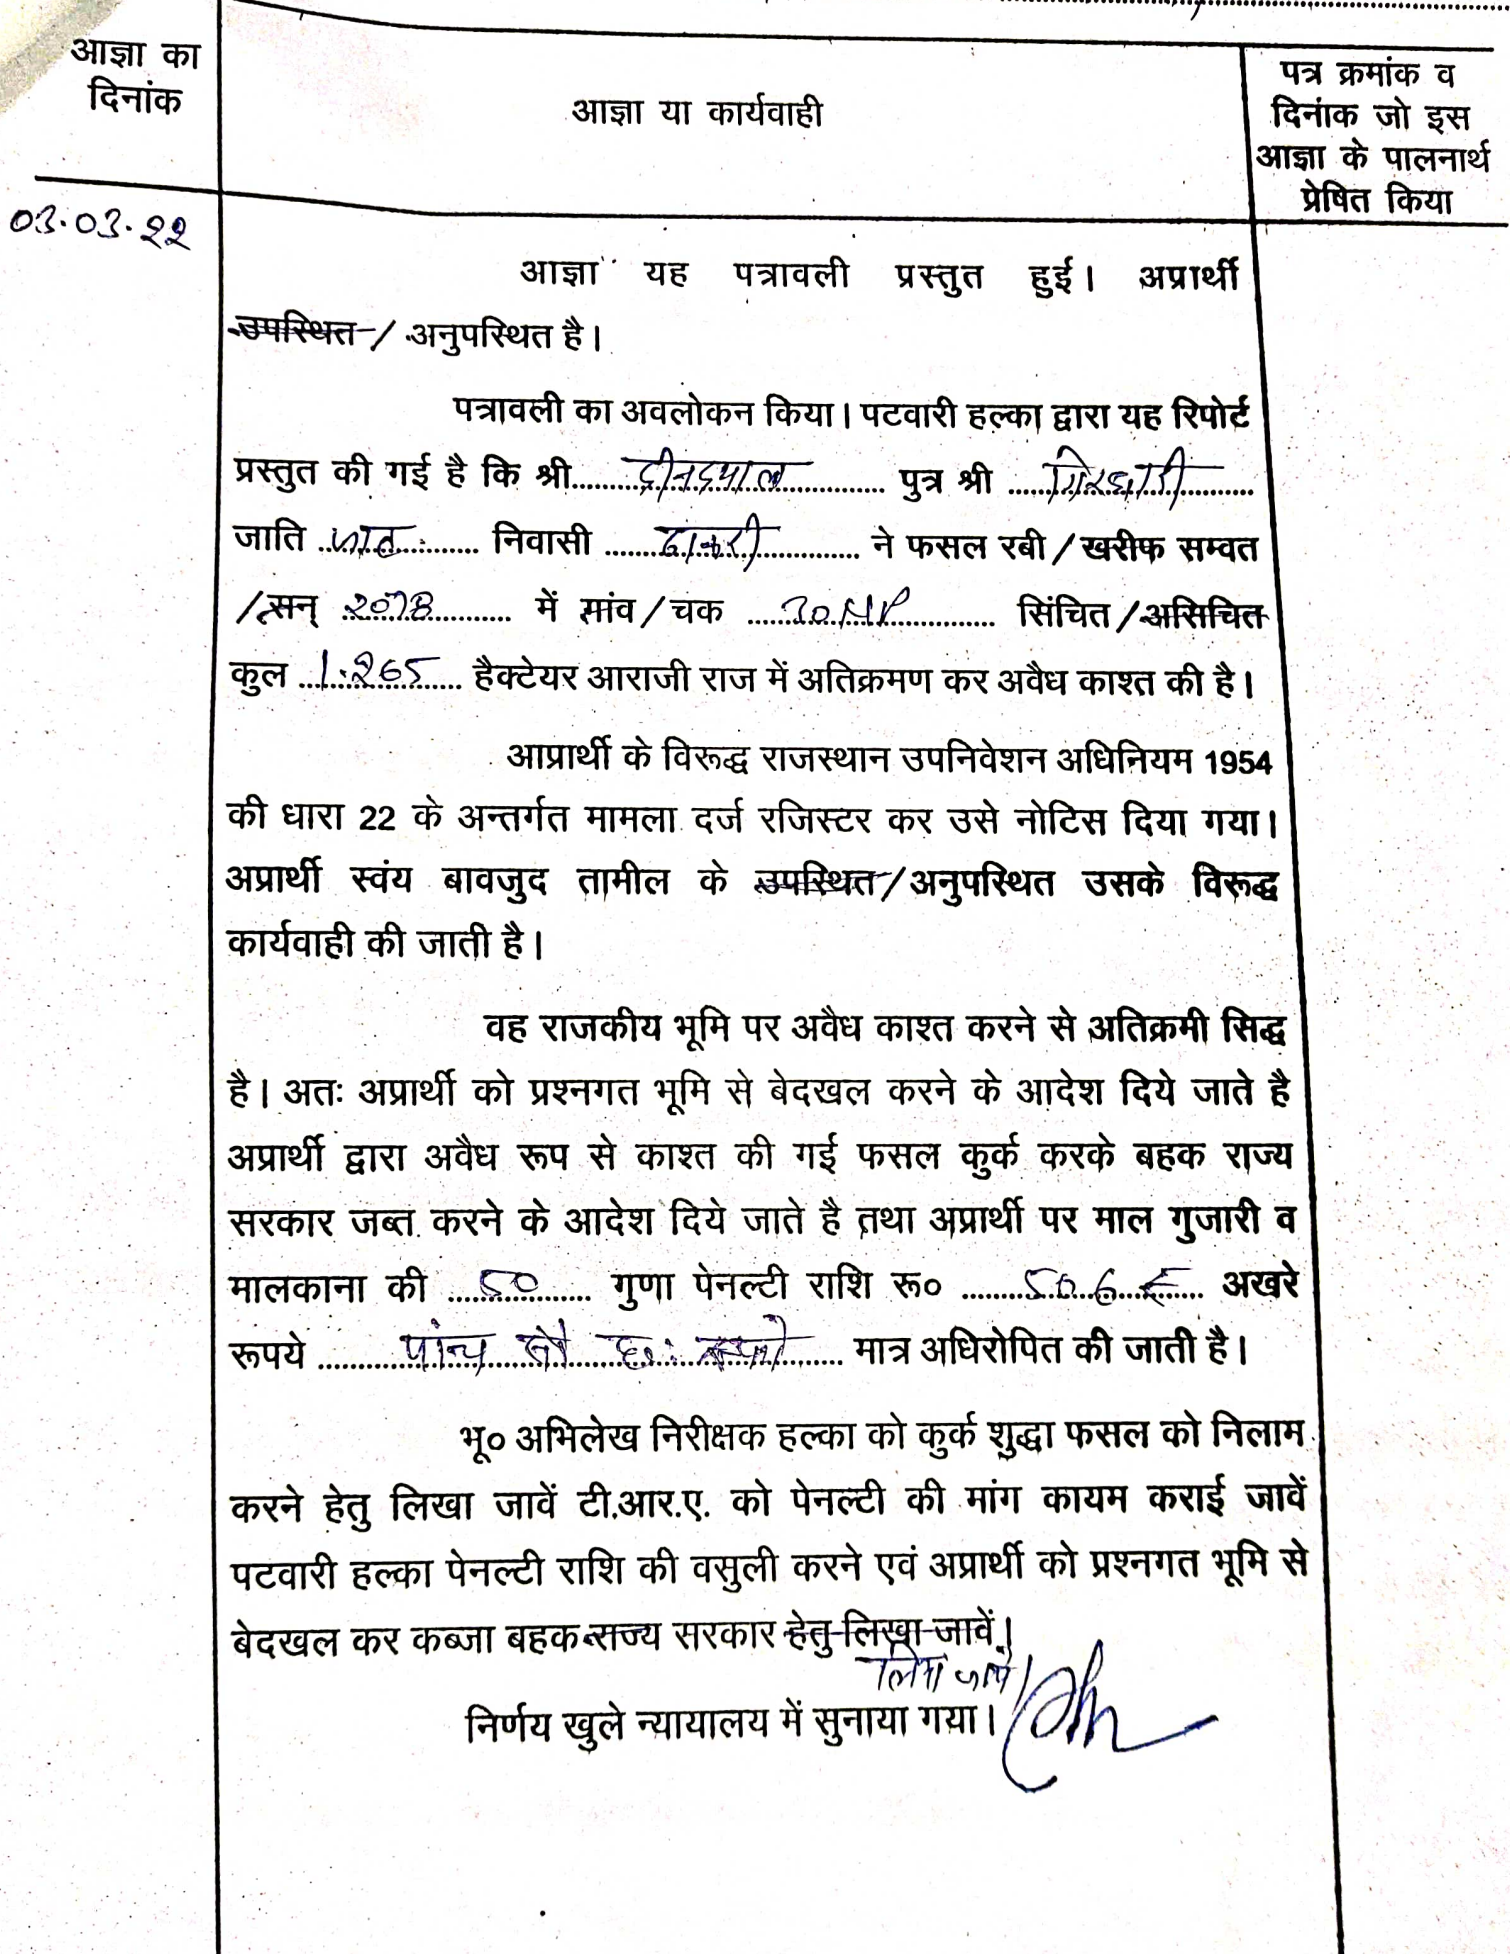 आज्ञा का
दिनांक
आज्ञा या कार्यवाही
पत्र क्रमांक व
दिनांक जो इस
आज्ञा के पालनार्थ
प्रेषित किया
03.03.22
आज्ञा यह पत्रावली प्रस्तुत हुई। अप्रार्थी
उपस्थित / अनुपस्थित है।
पत्रावली का अवलोकन किया। पटवारी हल्का द्वारा यह रिपोर्ट
प्रस्तुत की गई है कि श्री दीनदयाल पुत्र श्री गिरधारी
जाति जाट निवासी ने फसल रबी / खरीफ सम्वत
/ सन् 2078 में गांव / चक सिंचित / असिचित
कुल 1.265 हैक्टेयर आराजी राज में अतिक्रमण कर अवैध काश्त की है।
आप्रार्थी के विरूद्ध राजस्थान उपनिवेशन अधिनियम 1954
की धारा 22 के अन्तर्गत मामला दर्ज रजिस्टर कर उसे नोटिस दिया गया।
अप्रार्थी स्वंय बावजुद तामील के उपस्थित / अनुपस्थित उसके विरूद्ध
कार्यवाही की जाती है।
वह राजकीय भूमि पर अवैध काश्त करने से अतिक्रमी सिद्ध
है। अतः अप्रार्थी को प्रश्नगत भूमि से बेदखल करने के आदेश दिये जाते है
अप्रार्थी द्वारा अवैध रूप से काश्त की गई फसल कुर्क करके बहक राज्य
सरकार जब्त करने के आदेश दिये जाते है तथा अप्रार्थी पर माल गुजारी व
मालकाना की 50 गुणा पेनल्टी राशि रू० 506 अखरे
रूपये पांच सौ छः रूपये मात्र अधिरोपित की जाती है।
भू० अभिलेख निरीक्षक हल्का को कुर्क शुद्धा फसल को निलाम
करने हेतु लिखा जावें टी.आर.ए. को पेनल्टी की मांग कायम कराई जावें
पटवारी हल्का पेनल्टी राशि की वसुली करने एवं अप्रार्थी को प्रश्नगत भूमि से
बेदखल कर कब्जा बहक राज्य सरकार हेतु लिखा जावें।
निर्णय खुले न्यायालय में सुनाया गया।